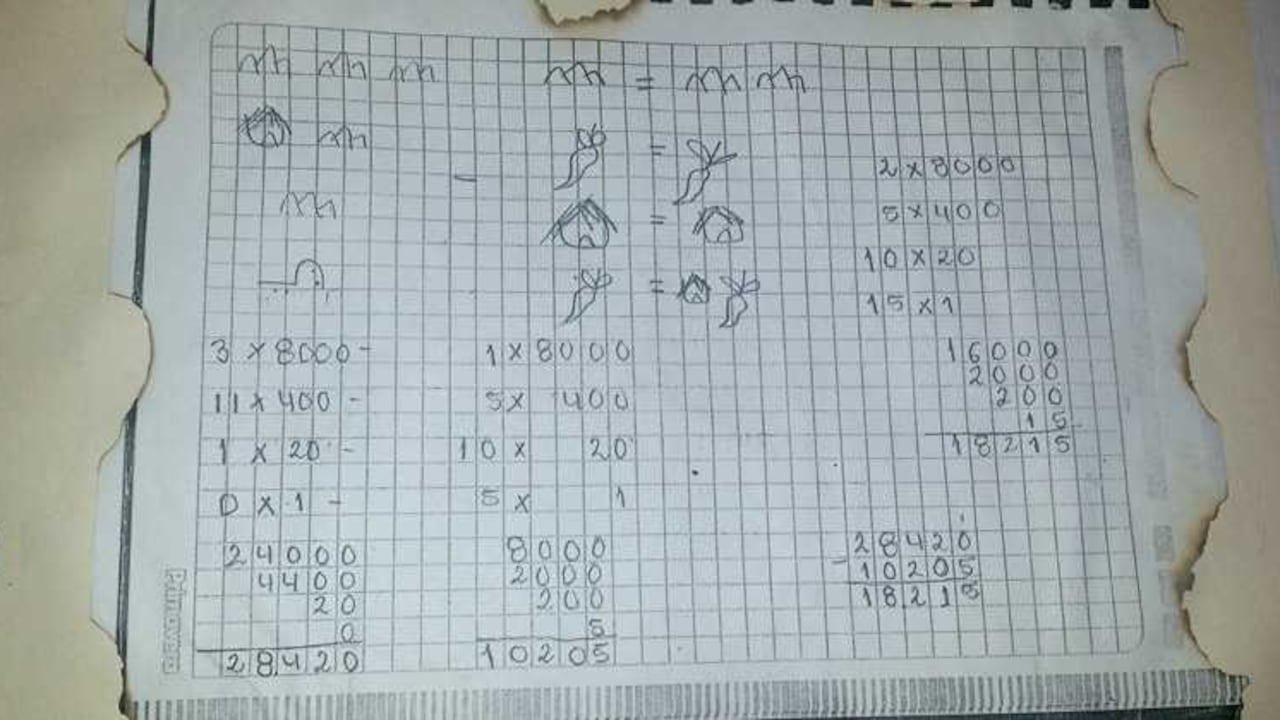 =
=
2 x 8000
-
5 x 400
=
10 x 20
=
15 x 1
3 x 8000 -
1 x 8000
16000
2000
11 x 400 -
5 x 400
200
15
1 x 20 -
10 x 20
18215
0 x 1 -
5 x 1
24000
8000
28420
4400
2000
- 10205
20
200
18215
0
5
28420
10205